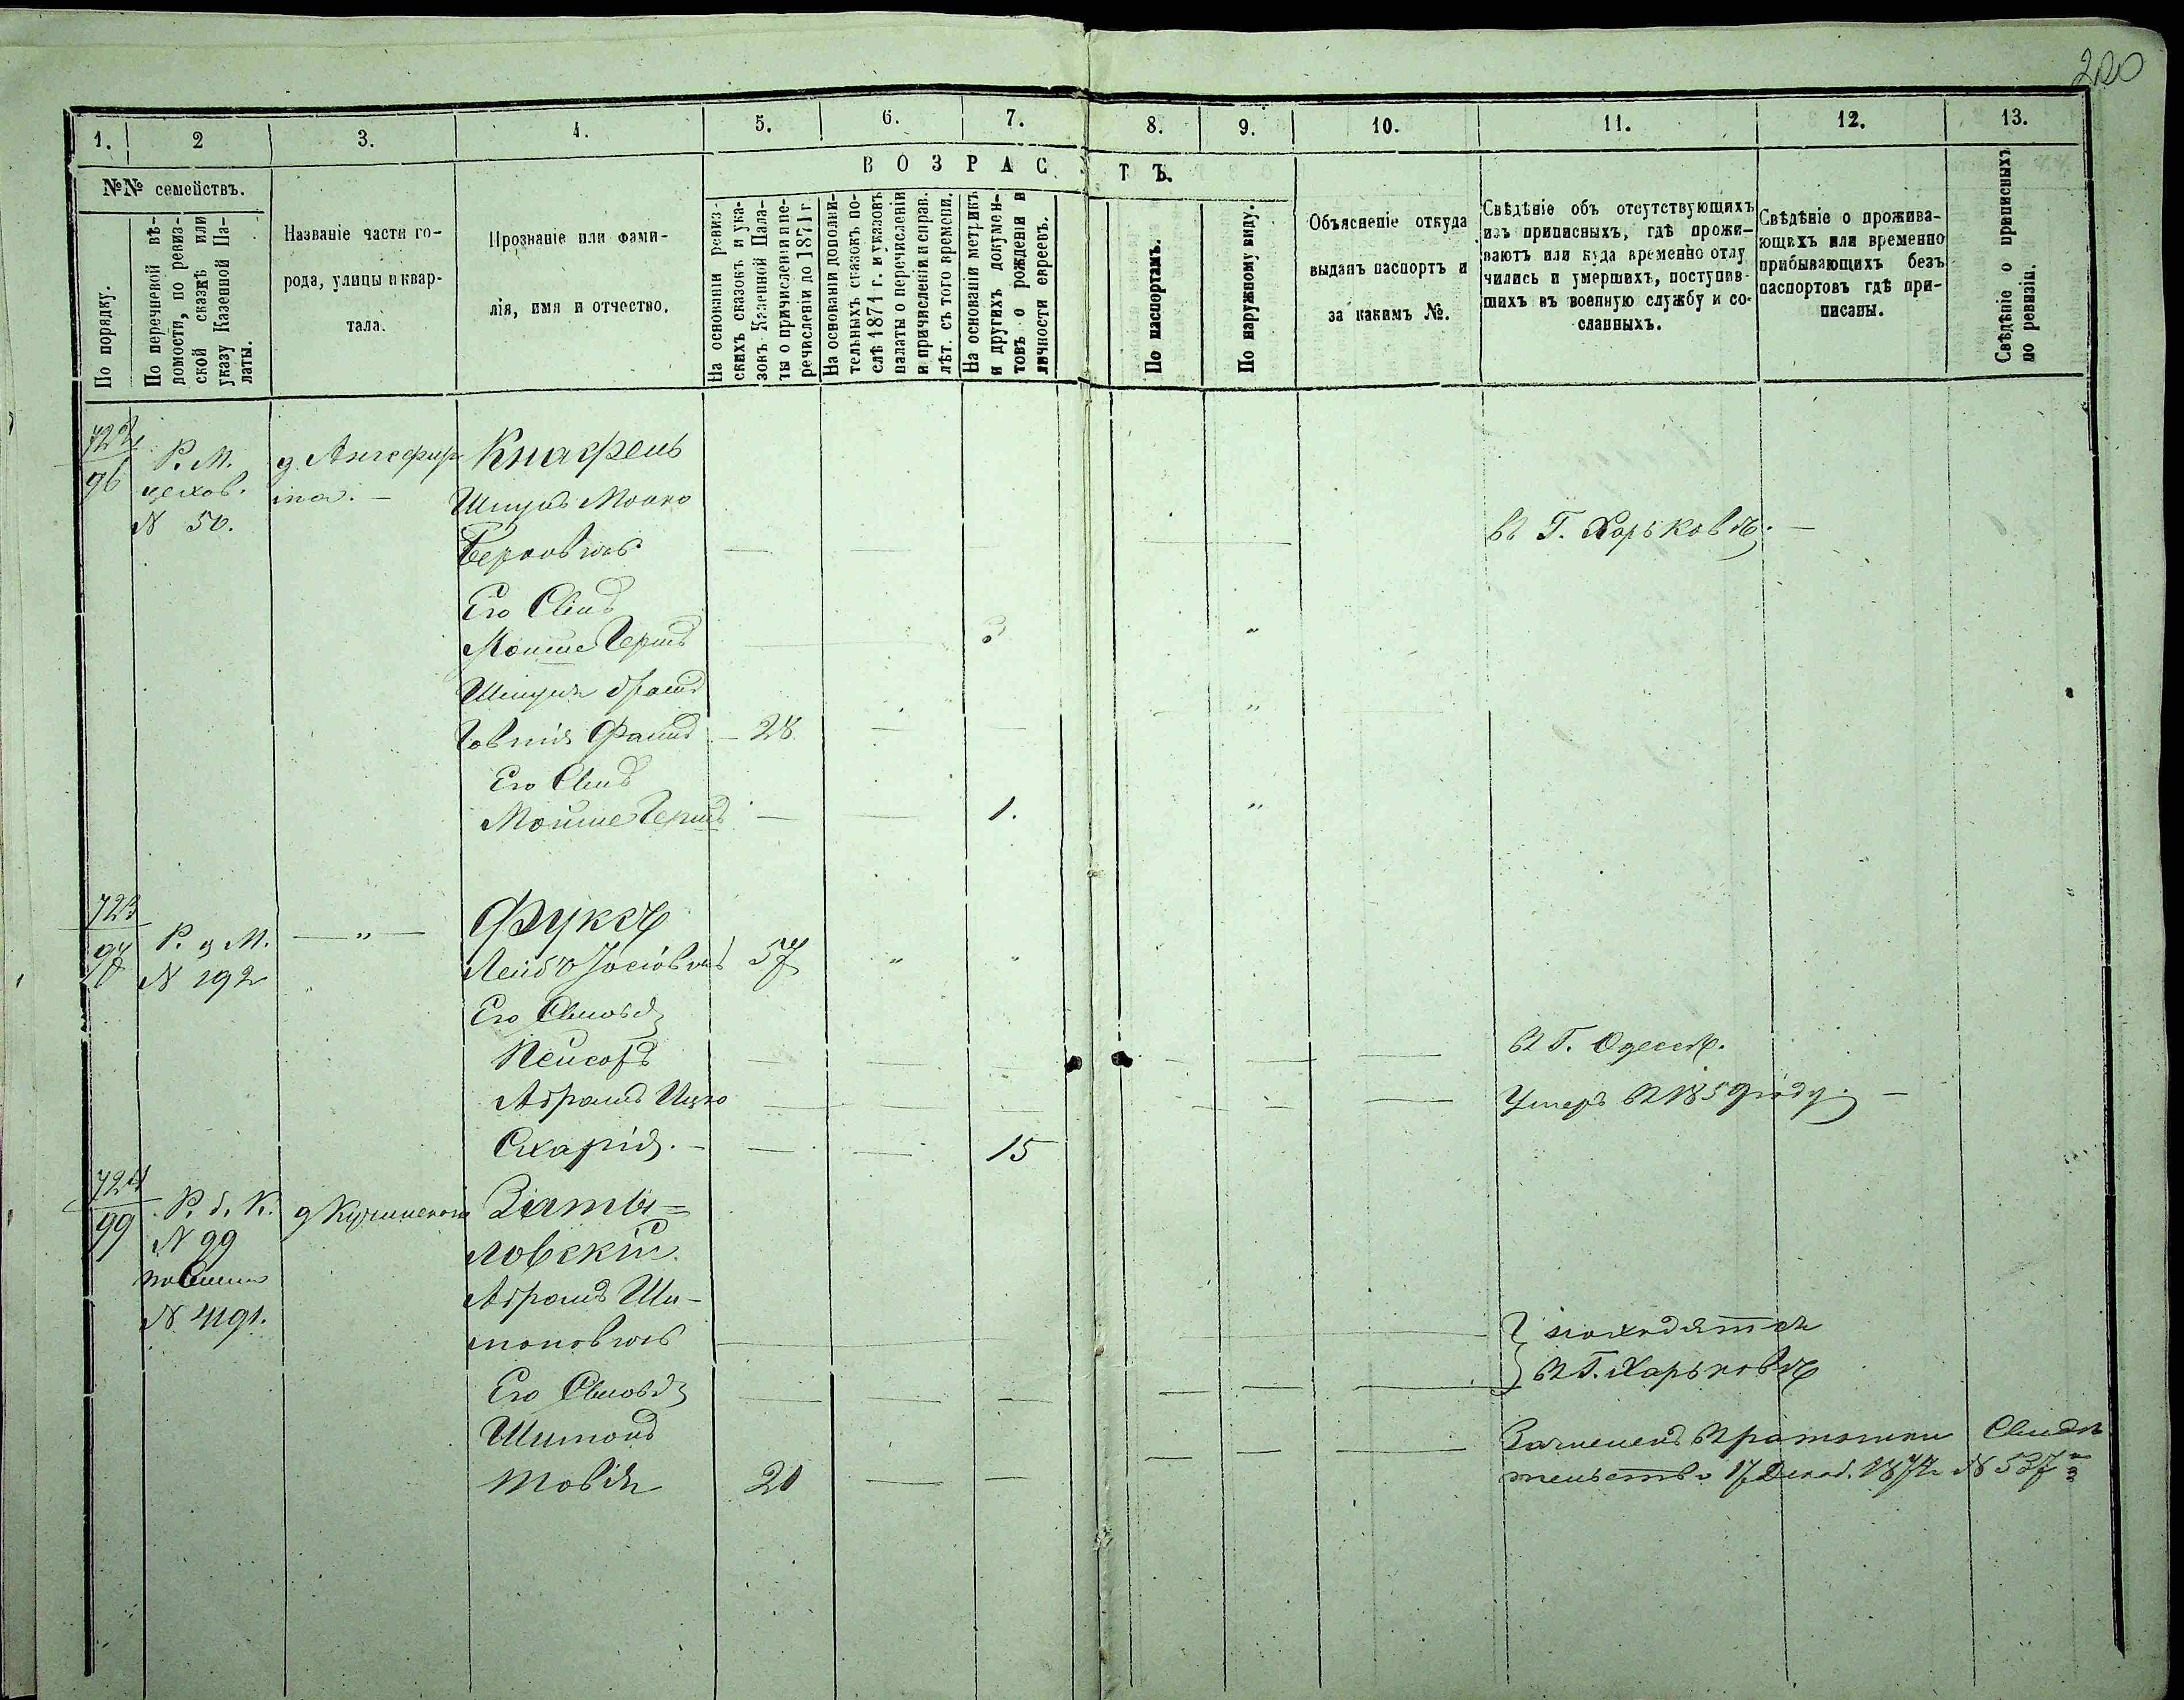 220
1. 2 3. 4. 5. 6. 7. 8. 9. 10. 11. 12. 13.
№№ семействъ.
По порядку.
По перечневой вѣ-
домости, по ревиз-
ской сказкѣ или
указу Казенной Па-
латы.
Названіе части го-
рода, улицы и квар-
тала.
Прозваніе или фами-
лія, имя и отчество.
ВОЗРАСТЪ.
На основаніи ревиз-
скихъ сказокъ и ука-
зовъ Казенной Пала-
ты о причисленіи и пе-
речисленіи до 1871 г.
На основаніи дополни-
тельныхъ сказокъ по-
слѣ 1871 г. и указовъ
палаты о перечисленіи
и причисленіи и справ.
лѣт. съ того времени.
На основаніи метрикъ
и другихъ докумен-
товъ о рожденіи и
личности евреевъ.
По паспортамъ.
По наружному виду.
Объясненіе откуда
выданъ паспортъ и
за какимъ №.
Свѣдѣніе объ отсутствующихъ
изъ приписныхъ, гдѣ прожи-
ваютъ или куда временно отлу
чились и умершихъ, поступив-
шихъ въ военную службу и со-
сланныхъ.
Свѣдѣніе о прожива-
ющихъ или временно
прибывающихъ безъ
паспортовъ гдѣ при-
писаны.
Свѣдѣніе о приписныхъ
по ревизіи.
722
96 Р. М. Кнафель
цехов.
N 50. Шмуль
Берковичъ — въ Г. Харьковѣ. —
Его Сынъ
Мойше Гершъ 3 "
Шмуля братъ
28 — — "
Его Сынъ
Мойше Гершъ — — 1. "
723
97 Р. д М. — " — Фуксъ
N 192 Лейба Іосіовичъ 57 " "
Его Сыновья
Пейсахъ — — — въ Г. Одессѣ.
Абрамъ Ицко — — — Умеръ въ 1859 году. —
Сахарія. — — — 15
724
99 Р. б. К. Златы=
N 99 ловскій
N 4191. Абрамъ Ши-
моновичъ
находятся
въ Г. Харьковѣ
Его Сыновья
Шимонъ
Товія 20 — —
Зачисленъ въ ратники Свидѣ
тельство 17 Декаб. 1874 г N 537